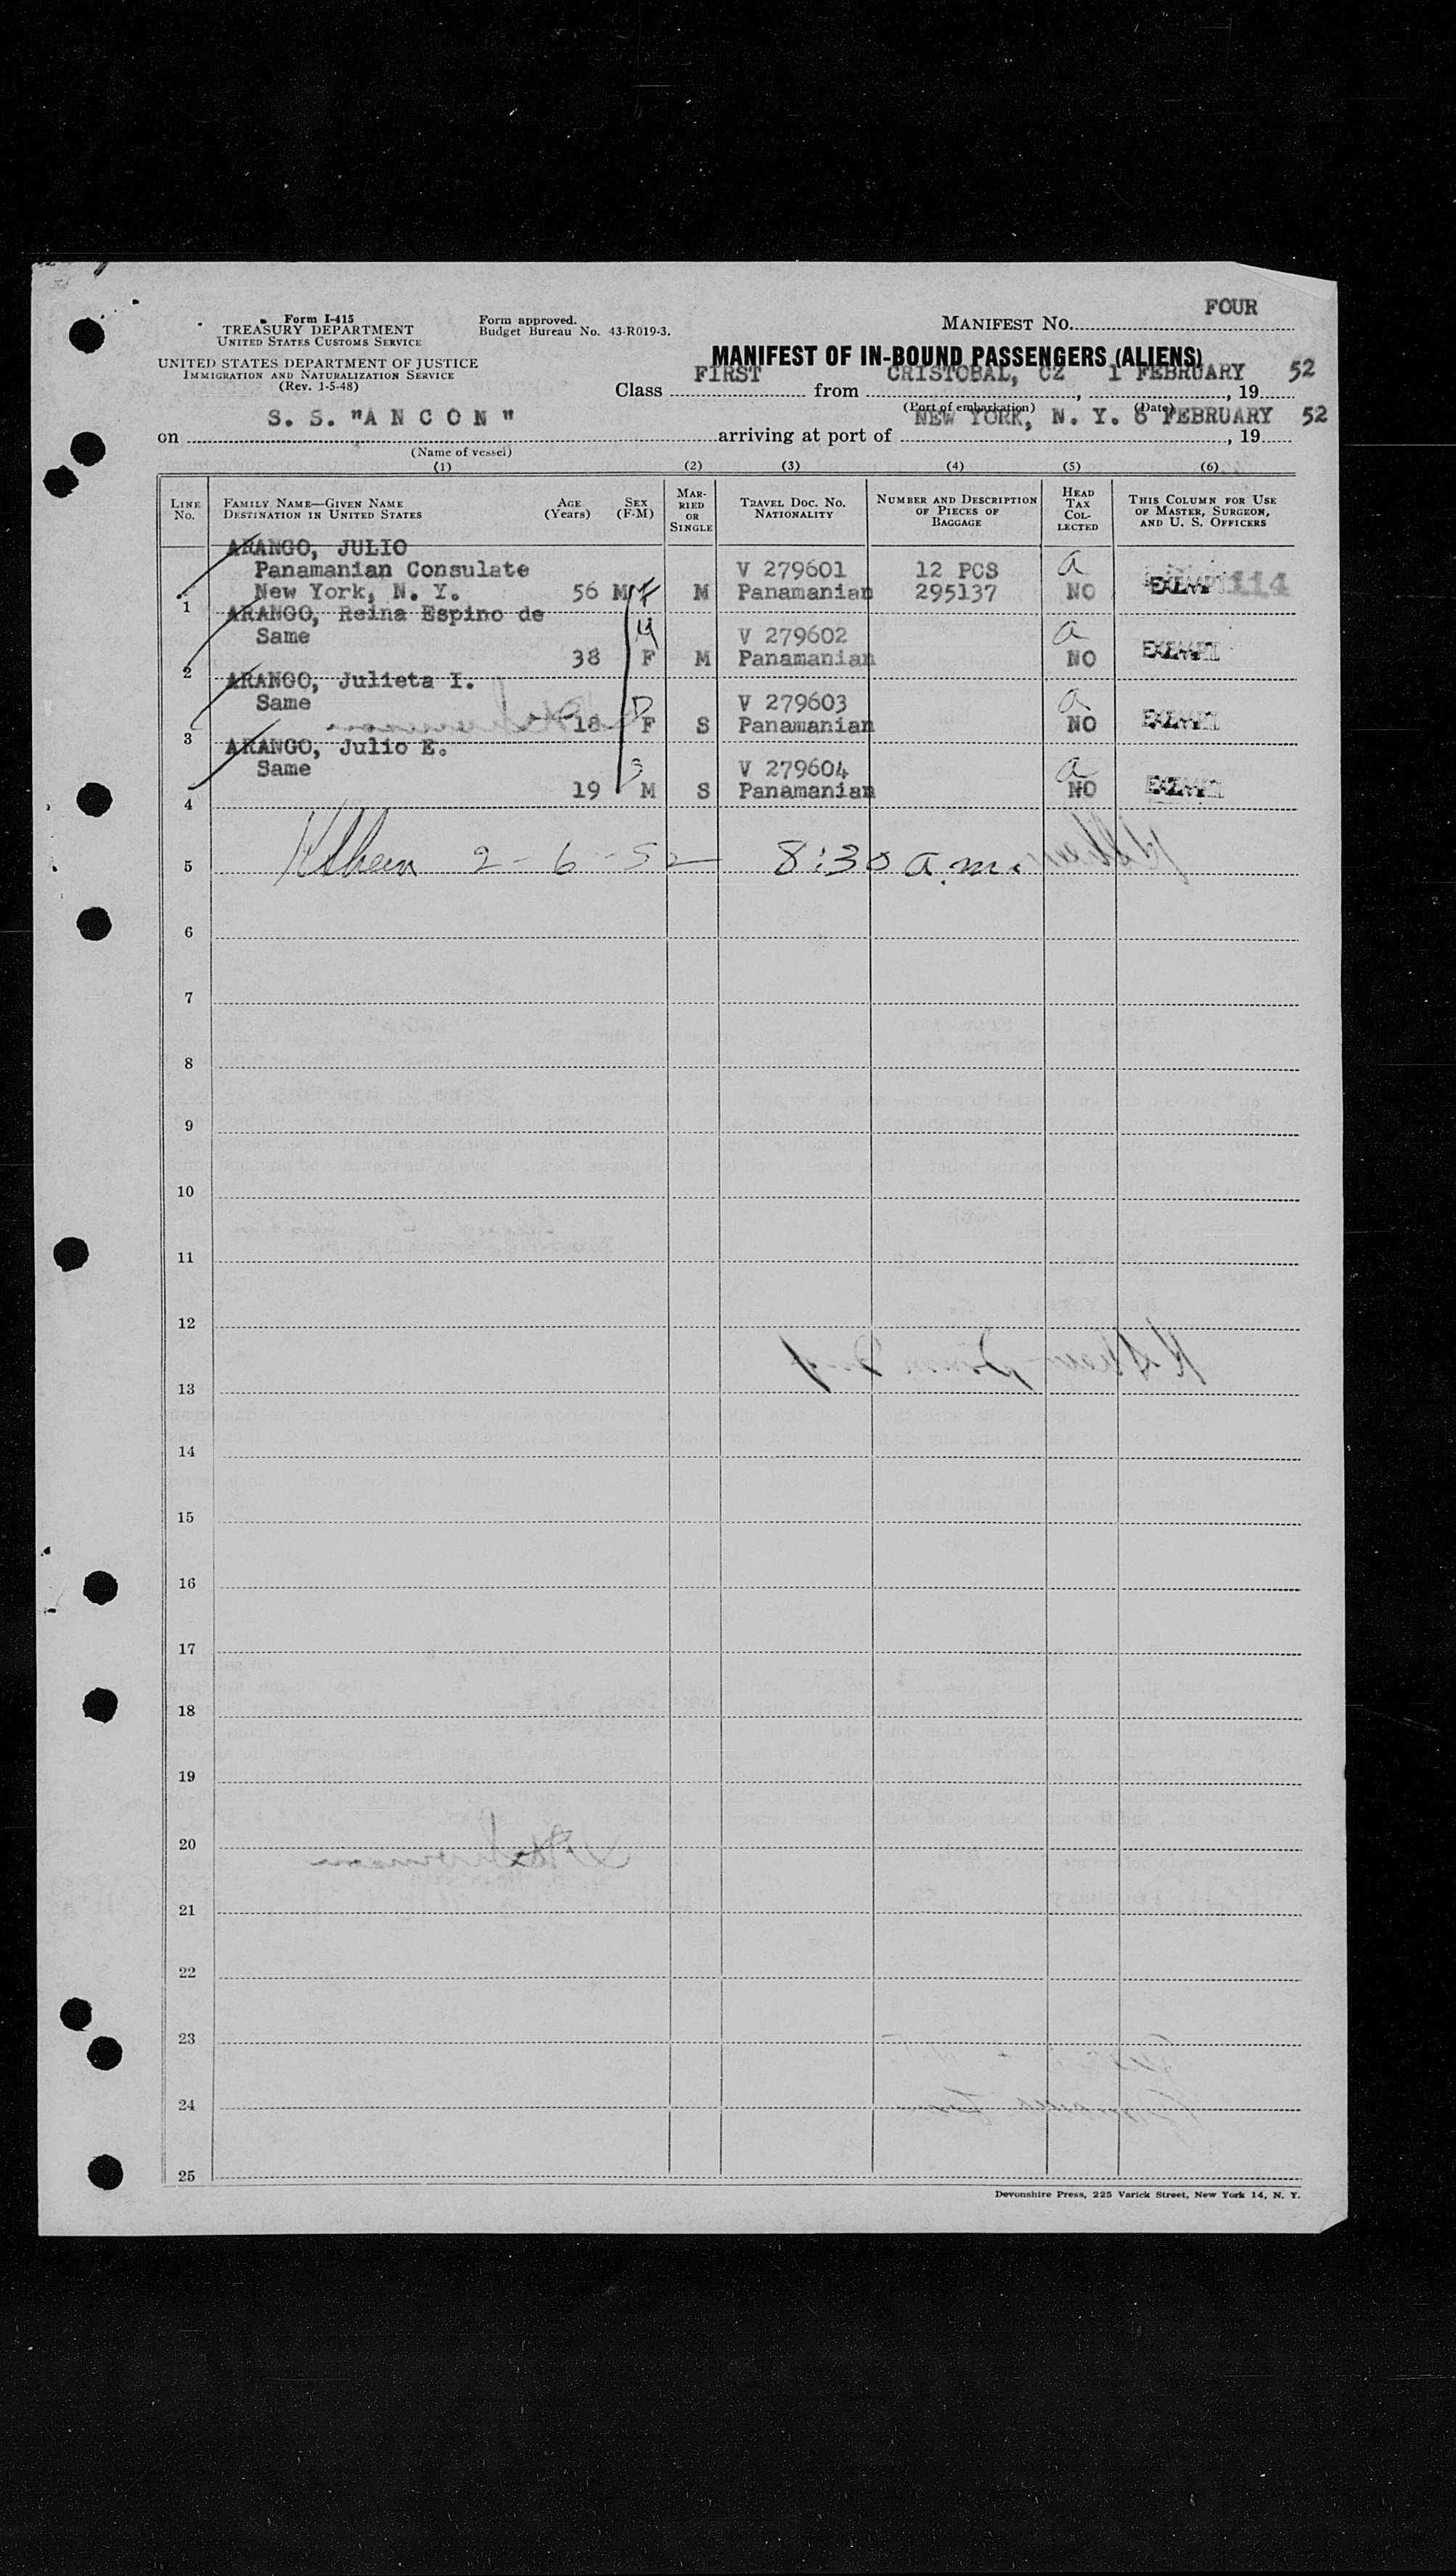 FOUR
Form I-415
TREASURY DEPARTMENT
UNITED STATES CUSTOMS SERVICE
Form approved.
Budget Bureau No. 43-R019-3.
MANIFEST NO.
UNITED STATES DEPARTMENT OF JUSTICE
IMMIGRATION AND NATURALIZATION SERVICE
(Rev. 1-5-48)
MANIFEST OF IN-BOUND PASSENGERS (ALIENS)
Class FIRST from CRISTOBAL, CZ 1 FEBRUARY, 19 52
(Port of embarkation) (Date)
on S. S. "A N C O N" arriving at port of NEW YORK, N. Y. 6 FEBRUARY, 19 52
(Name of vessel)
(1) (2) (3) (4) (5) (6)
LINE NO.
FAMILY NAME—GIVEN NAME
DESTINATION IN UNITED STATES
AGE (Years)
SEX (F-M)
MAR-
RIED
OR
SINGLE
TRAVEL DOC. NO.
NATIONALITY
NUMBER AND DESCRIPTION
OF PIECES OF
BAGGAGE
HEAD
TAX
COL-
LECTED
THIS COLUMN FOR USE
OF MASTER, SURGEON,
AND U. S. OFFICERS
ARANGO, JULIO
Panamanian Consulate V 279601 12 PCS a
1 New York, N. Y. 56 M F M Panamanian 295137 NO EXEMPT 114
ARANGO, Reina Espino de
Same M V 279602 a
2 38 F M Panamanian NO EXEMPT
ARANGO, Julieta I.
Same D V 279603 a
3 18 F S Panamanian NO EXEMPT
ARANGO, Julio E.
Same S V 279604 a
4 19 M S Panamanian NO EXEMPT
5 2-6-52 8:30 a.m.
6
7
8
9
10
11
12
13
14
15
16
17
18
19
20
21
22
23
24
25
Devonshire Press, 225 Varick Street, New York 14, N. Y.